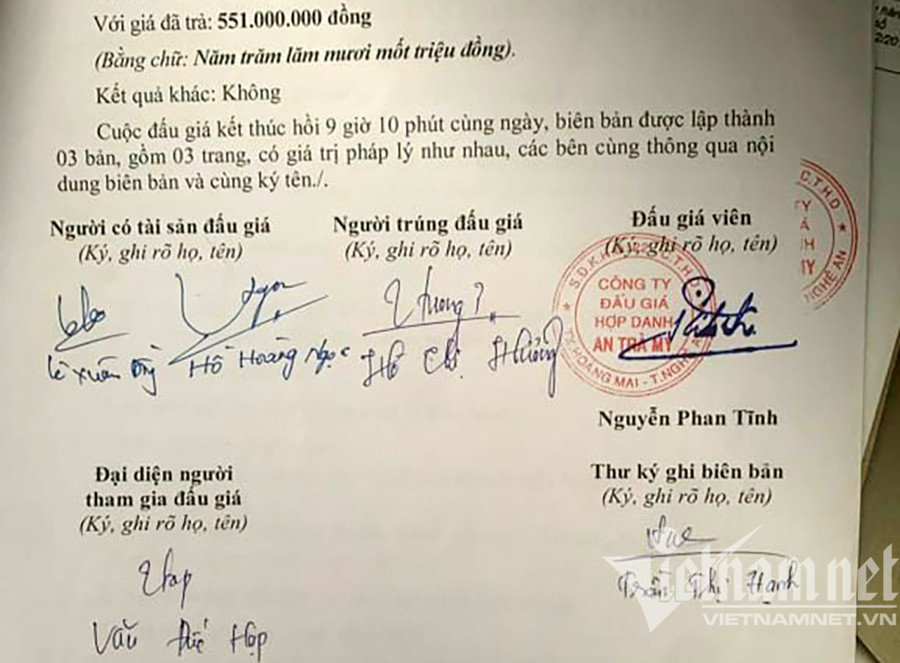 Với giá đã trả: 551.000.000 đồng
(Bằng chữ: Năm trăm lăm mươi mốt triệu đồng).
Kết quả khác: Không
Cuộc đấu giá kết thúc hồi 9 giờ 10 phút cùng ngày, biên bản được lập thành
03 bản, gồm 03 trang, có giá trị pháp lý như nhau, các bên cùng thông qua nội
dung biên bản và cùng ký tên./.
Người có tài sản đấu giá
(Ký, ghi rõ họ, tên)
Lê Xuân
Hồ Hoàng Ngọc
Người trúng đấu giá
(Ký, ghi rõ họ, tên)
Hồ Thị Hương
Đấu giá viên
(Ký, ghi rõ họ, tên)
CÔNG TY
ĐẤU GIÁ
HỢP DANH
AN TRÀ MY
TX.HOÀNG MAI - T.NGHỆ AN
Nguyễn Phan Tĩnh
C.T.H.D
NGHỆ AN
Đại diện người
tham gia đấu giá
(Ký, ghi rõ họ, tên)
Văn Đức Hợp
Thư ký ghi biên bản
(Ký, ghi rõ họ, tên)
Trần Thị Hạnh
Vietnamnet
VIETNAMNET.VN